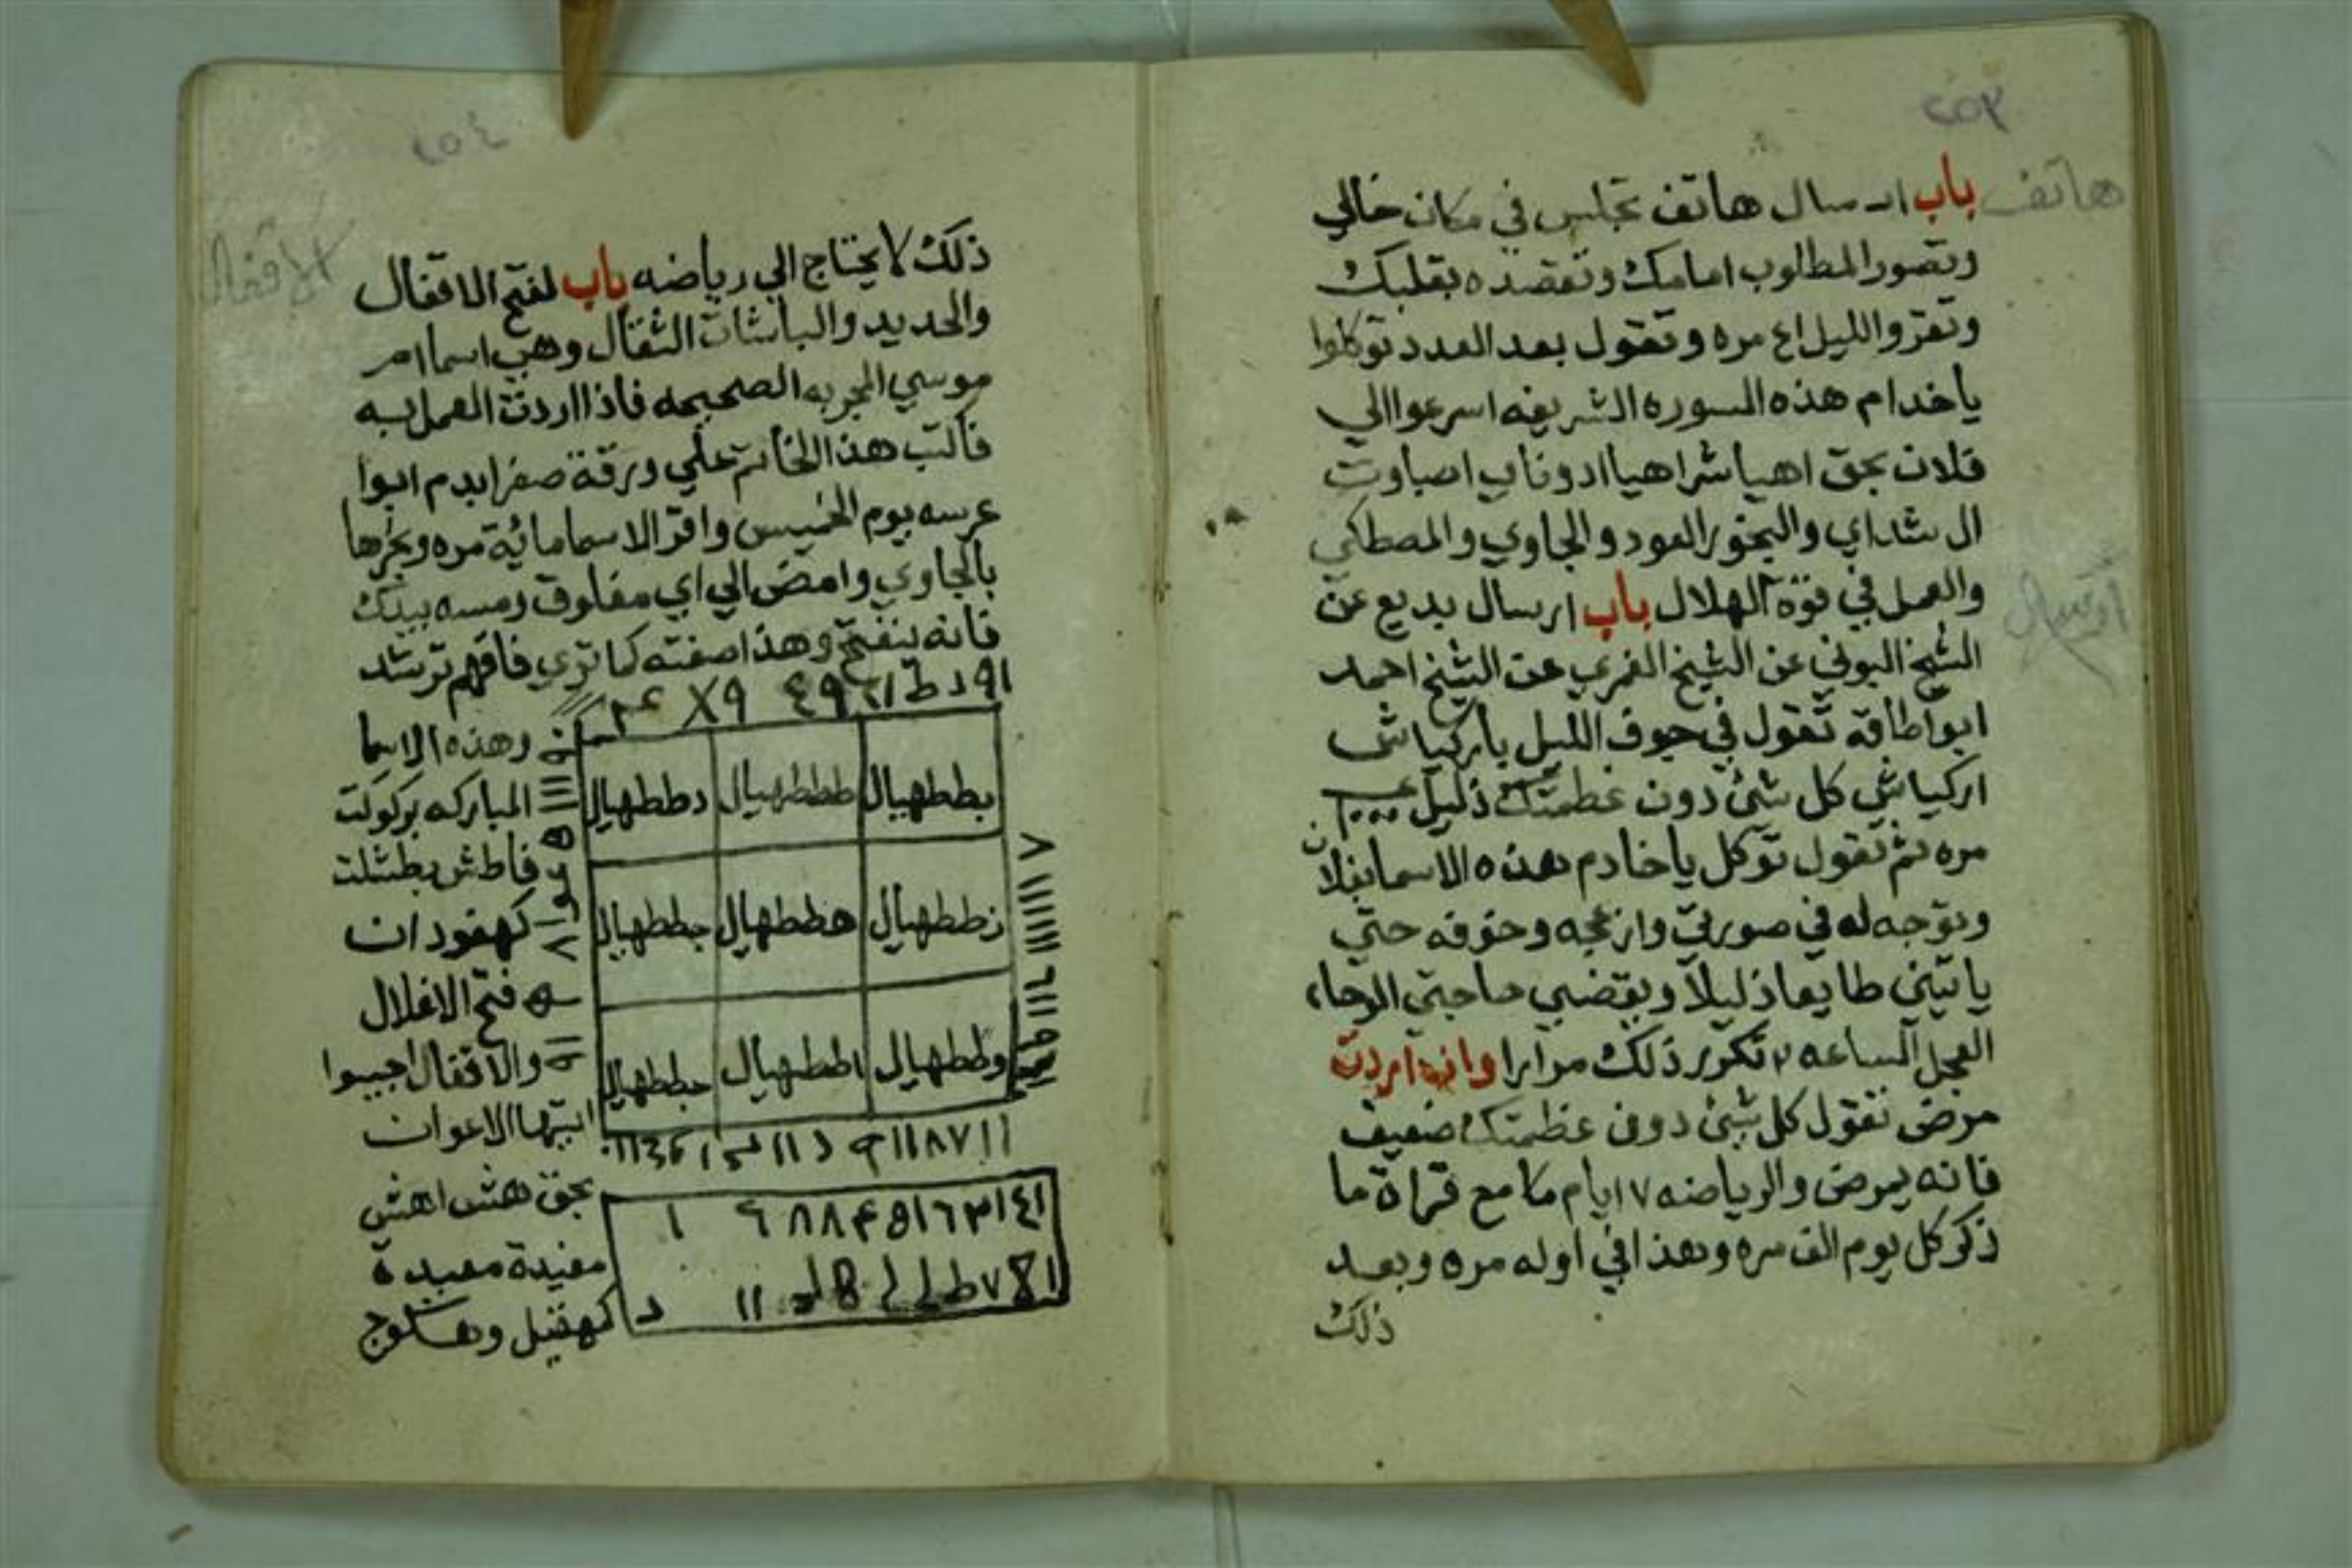 ٢٥٣
هاتف
باب ارسال هاتف تجلس في مكان خالي
وتصور المطلوب امامك وتقصده بقلبك
وتقرو الليل ٤١ مره وتقول بعد العدد توكلوا
ياخدام هذه السوره الشريفه اسرعوا الي
فلان بحق اهيا شراهيا ادوناي اصباوت
ال شداي والبخور العود والجاوي والمصطكي
والعمل في قوة الهلال باب ارسال بديع عن
ارسال
الشيخ البوني عن الشيخ الغمري عن الشيخ احمد
ابوا طاقه تقول في جوف الليل ياركياش
اركياش كل شئ دون عظمتك ذليل
مره ثم تقول توكل ياخادم هذه الاسما بفلان
وتوجه له في صورتي وازعجه وخوفه حتي
ياتيني طايعا ذليلا ويقضي حاجتي الوحا
العجل الساعه ٢ تكرر ذلك مرارا وان اردت
مرض تقول كل شئ دون عظمتك ضعيف
فانه يمرض والرياضه ١٧ ايام مع قراة ما
ذكر كل يوم الف مره وهذا في اوله مره وبعد
ذلك
٢٥٤
الاقفال
ذلك لا يحتاج الي رياضه باب لفتح الاقفال
والحديد والباشات الثقال وهي اسما ام
موسي المجربه الصحيحه فاذا اردت العمل به
فاكتب هذا الخاتم علي ورقة صفرا بدم ابوا
عرسه يوم الخميس واقر الاسما مائة مره وبخرها
بالجاوي وامض الي اي مغلوق ومسه بيدك
فانه ينفتح وهذا صفته كما تري فافهم ترشد
بططهيال ططططهيال دططهيال
زططهيال هططهيال جططهيال
وططهيال اططهيال حططهيال
وهذه الاسما
المباركه بركوكت
فاطش بطشلت
كهفود ان
فتح الاغلال
والاقفال اجيبوا
ايتها الاعوان
بحق هش اهش
مفيدة معيدة
كهقيل وهشلوج